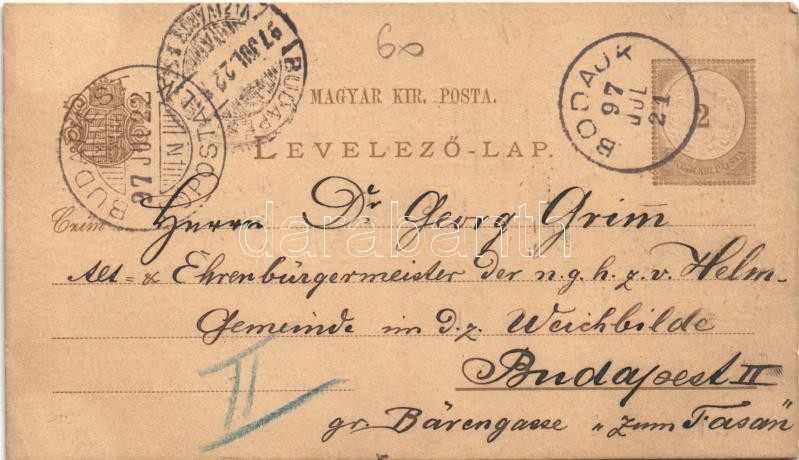 60
MAGYAR KIR. POSTA.
LEVELEZŐ-LAP.
BODAJK
97
JUL
21
2
MAGYAR KIR. POSTA
BUDAPEST
97 JUL 22
BUDAPEST
97 JUL 22
Czím Herrn Dr. Georg Grim̄
darabanth
Alt- & Ehrenbürgermeister der n. g. h. z. v. Helm-
Gemeinde im d. z. Weichbilde
Budapest II
II
gr. Bärengasse „zum Fasan"